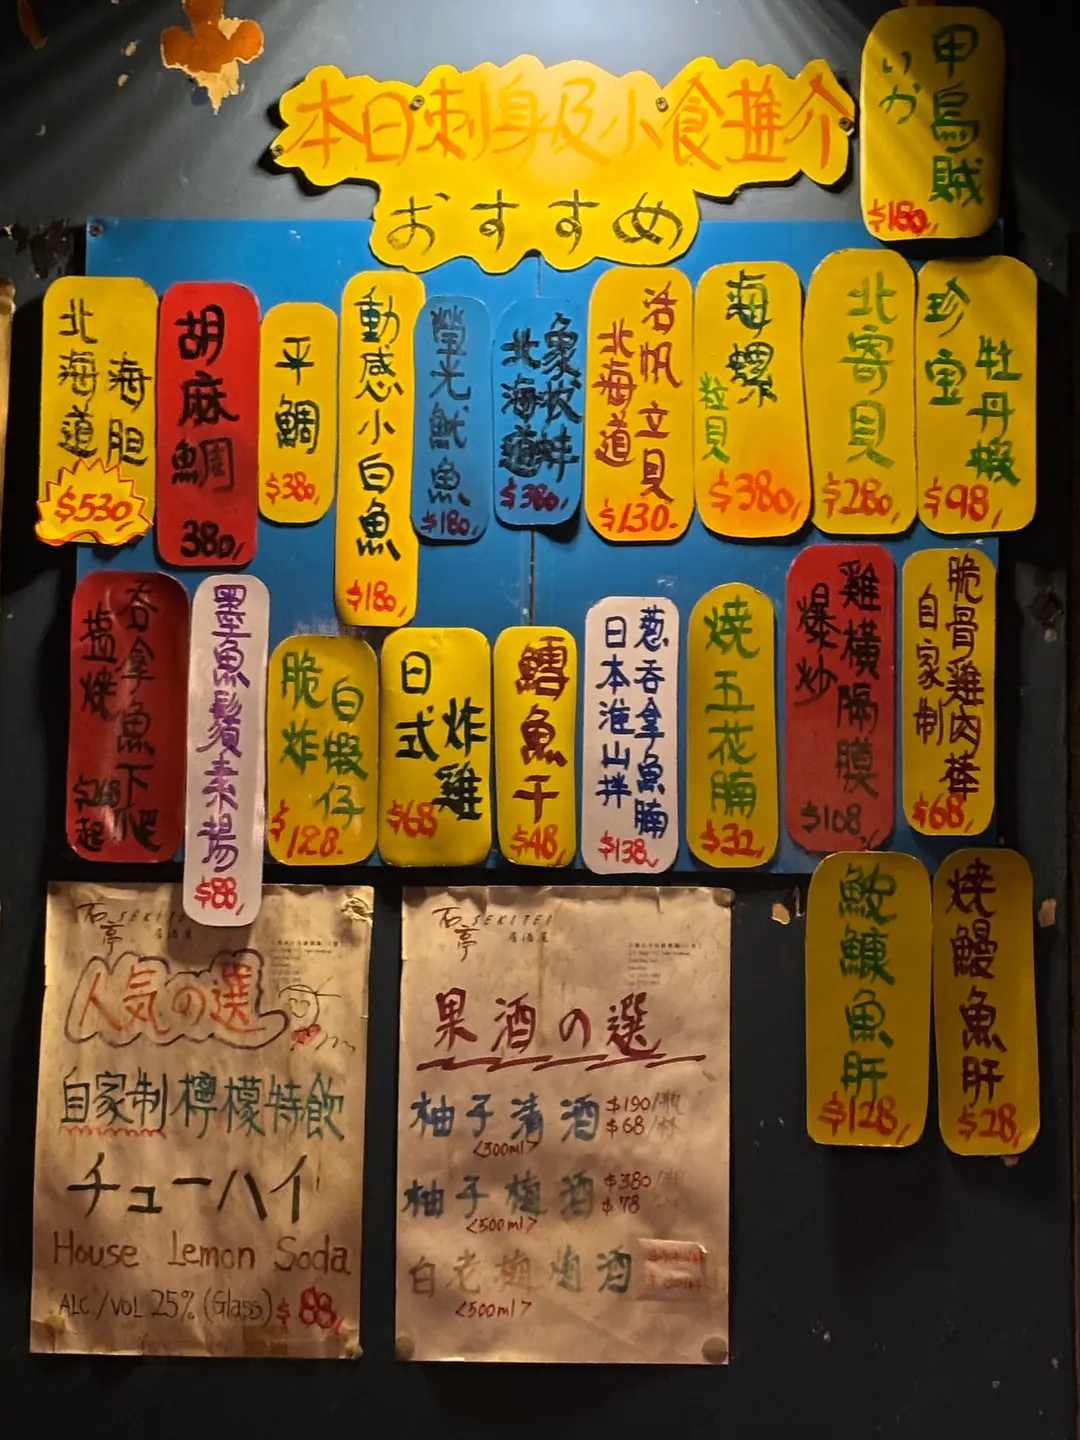 本日刺身及小食推介
おすすめ
甲烏賊
いか
$180
北海道
海胆
$530
胡麻鯛
380
平鯛
$380
動感小白魚
$180
螢光魷魚
$180
北海道
象拔蚌
$380
活帆立貝
北海道
$130
海螺
粒貝
$380
北寄貝
$280
珍宝
牡丹蝦
$98
吞拿魚下爬
塩燒
$268起
墨魚鬚素揚
$88
脆炸
白蝦仔
$128
日式
炸雞
$68
鱈魚干
$48
葱吞拿魚腩
日本淮山拌
$138
燒五花腩
$32
雞橫膈膜
爆炒
$108
脆骨雞肉棒
自家制
$68
鮟鱇魚肝
$128
燒鰻魚肝
$28
石亭 SEKITEI
居酒屋
人気の選
自家制檸檬特飲
チューハイ
House Lemon Soda
ALC./VOL 25% (Glass) $88
石亭 SEKITEI
居酒屋
果酒の選
柚子清酒 $190/瓶
$68/杯
<300ml>
柚子梅酒 $380
$78
<500ml>
白老梅酒
<500ml>